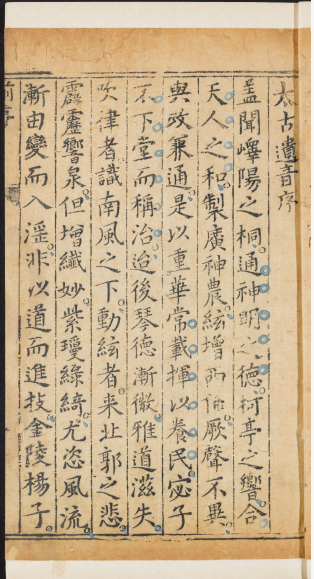 太古遺音序
盖聞嶧陽之桐通神明之德柯亭之響合
天人之和製廣神農絃增兩儀厥聲不異
與政兼通是以重華常載揮以養民宓子
不下堂而稱治迨後琴德漸微雅道滋失
吹津者識南風之下動絃者来北郭之悲
霹靂響泉但増纖妙紫瓊綠綺尤恣風流
漸由變而入滛非以道而進技金陵楊子